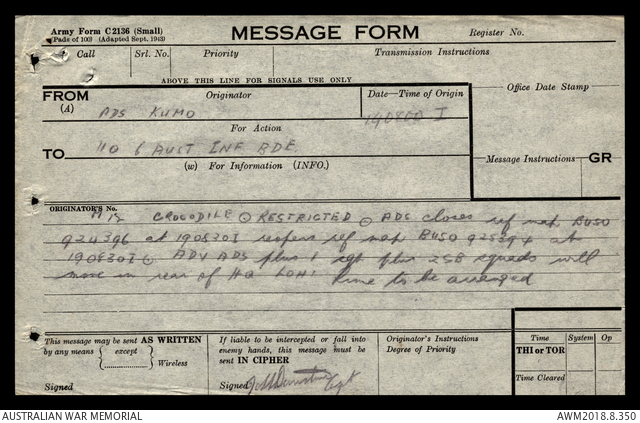 Army Form C2136 (Small)
(Pads of 100) (Adapted Sept. 1943)
MESSAGE FORM
Register No.
Call
Srl. No.
Priority
Transmission Instructions
ABOVE THIS LINE FOR SIGNALS USE ONLY
FROM
(A)
Originator
Date—Time of Origin
Office Date Stamp
ADS KUMO
190800 I
For Action
TO
HQ 6 AUST INF BDE
(w) For Information (INFO.)
Message Instructions
GR
ORIGINATOR'S No.
CROCODILE ⊙ RESTRICTED ⊙ ADS closes ref map BUSO
924396 at 190830I reopens ref map BUSO 925394 at
190830I ⊙ ADV ADS plus 1 sgt plus 2SB squads will
move in rear of HQ Time to be arranged
This message may be sent AS WRITTEN
by any means { except } Wireless
Signed
If liable to be intercepted or fall into
enemy hands, this message must be
sent IN CIPHER
Signed Capt
Originator's Instructions
Degree of Priority
Time
System
Op
THI or TOR
Time Cleared
AUSTRALIAN WAR MEMORIAL
AWM2018.8.350